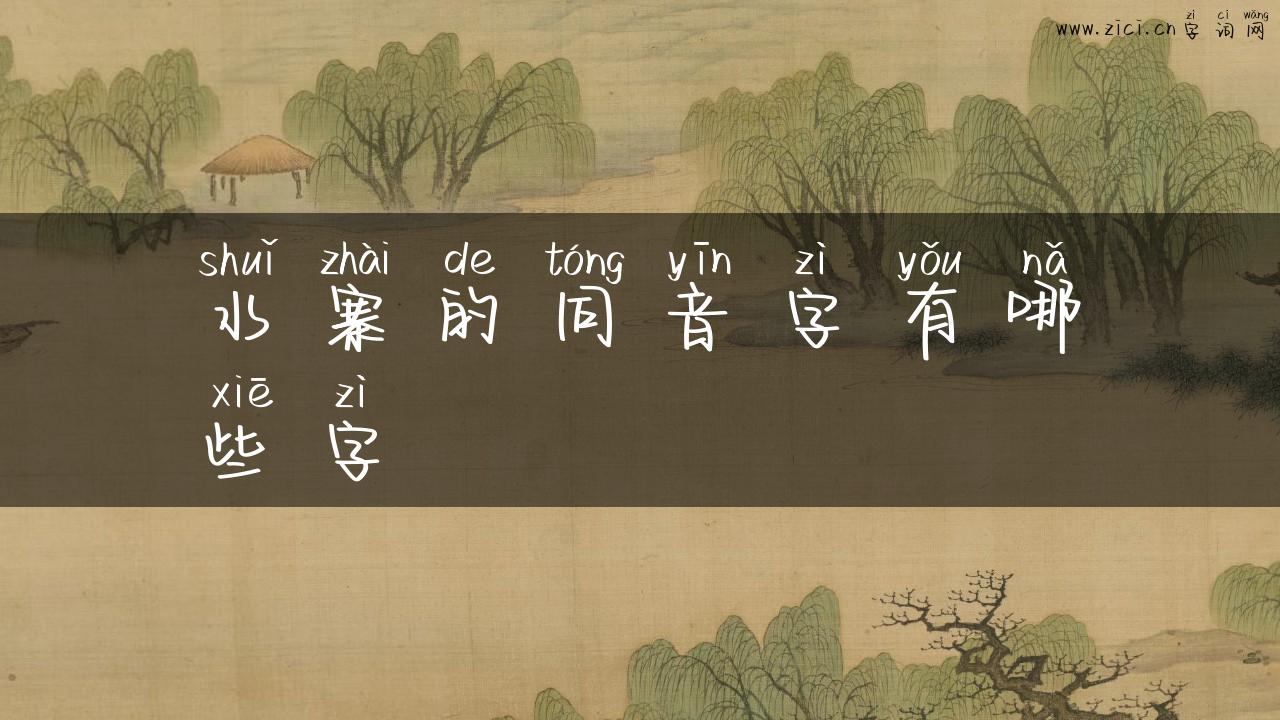 zì cí wǎng
www.zici.cn 字词网
shuǐ zhài de tóng yīn zì yǒu nǎ
水寨的同音字有哪
xiē zì
些字